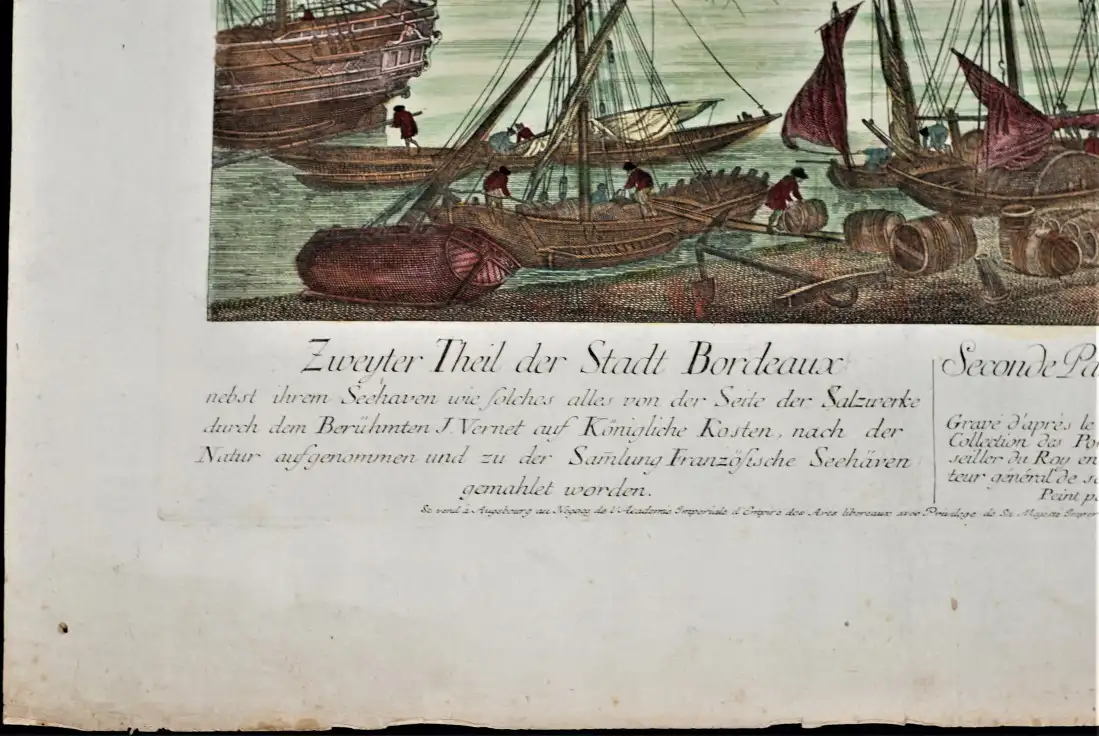 Zweyter Theil der Stadt Bordeaux
nebst ihrem Seehaven wie solches alles von der Seite der Salzwerke
durch dem Berühmten J. Vernet auf Königliche Kosten, nach der
Natur aufgenommen und zu der Sam̄lung Französische Seehäven
gemahlet worden.
Seconde Pa
Gravé d'aprés le
Collection des Po
seiller du Roy en
teur général de s
Peint p
Se vend à Augsbourg au Negoce de l'Academie Imperiale d'Empire des Arts liberaux avec Privilege de Sa Majesté Imper